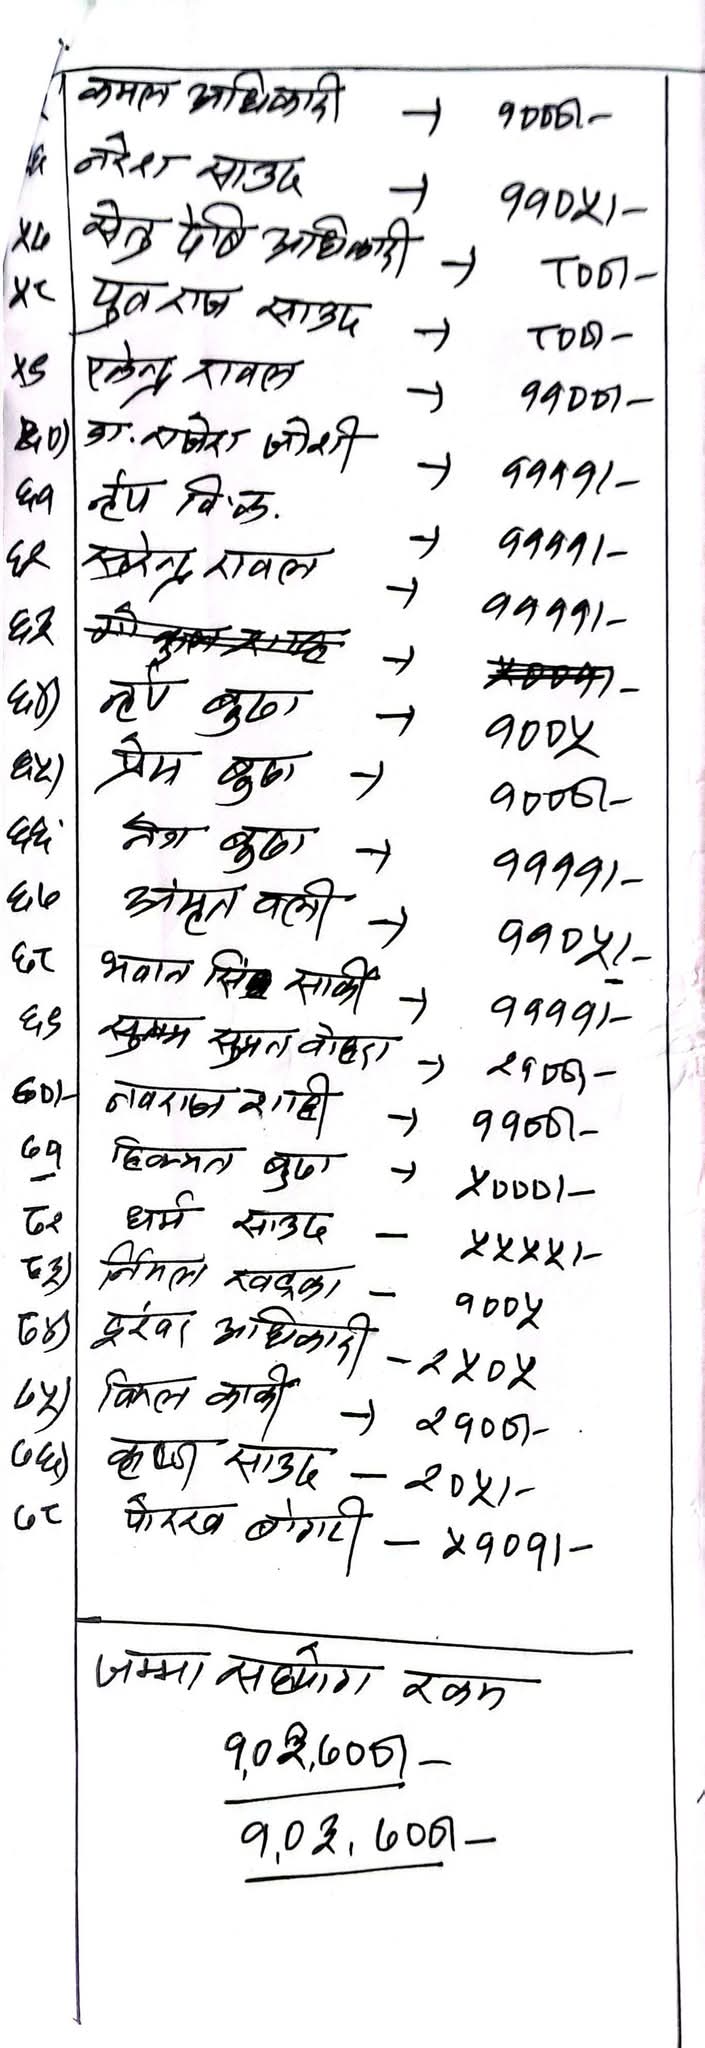 कमल अधिकारी → १०००/-
नरेश साउद → ११०५/-
५७ सेतु देवि अधिकारी → ८००/-
५८ युवराज साउद → ८००/-
५९ एलेन्द्र रावल → ११००/-
६०) डा. राजेश जोशी → ११११/-
६१ नृप वि.क. → ११११/-
६२ सुरेन्द्र रावल → ११११/-
६३ →
६४) नृप बुढा → १००५
६५) प्रेम बुढा → १०००/-
६६ नेत्र बुढा → ११११/-
६७ अमृत वली → ११०५/-
६८ भवान सिंह सार्की → ११११/-
६९ सुमन वोहरा → २१००/-
७०/- नवराज शाही → ११००/-
७१ हिक्मत बुढा → ५०००/-
७२ धर्म साउद - ५५५५/-
७३) निर्मल खड्का - १००५
७४) अधिकारी - २५०५
७५) विमल कार्की → २१००/-
७६) कृष्ण साउद - २०५/-
७८ बोगटी - ५१०१/-
जम्मा सहयोग रकम
१,०३,७००/-
१,०३,७००/-